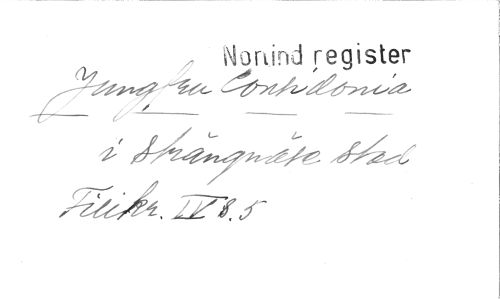 Nonind register
Jungfru Confidonia
i Strängnäs stad
Filikr. IV s. 5